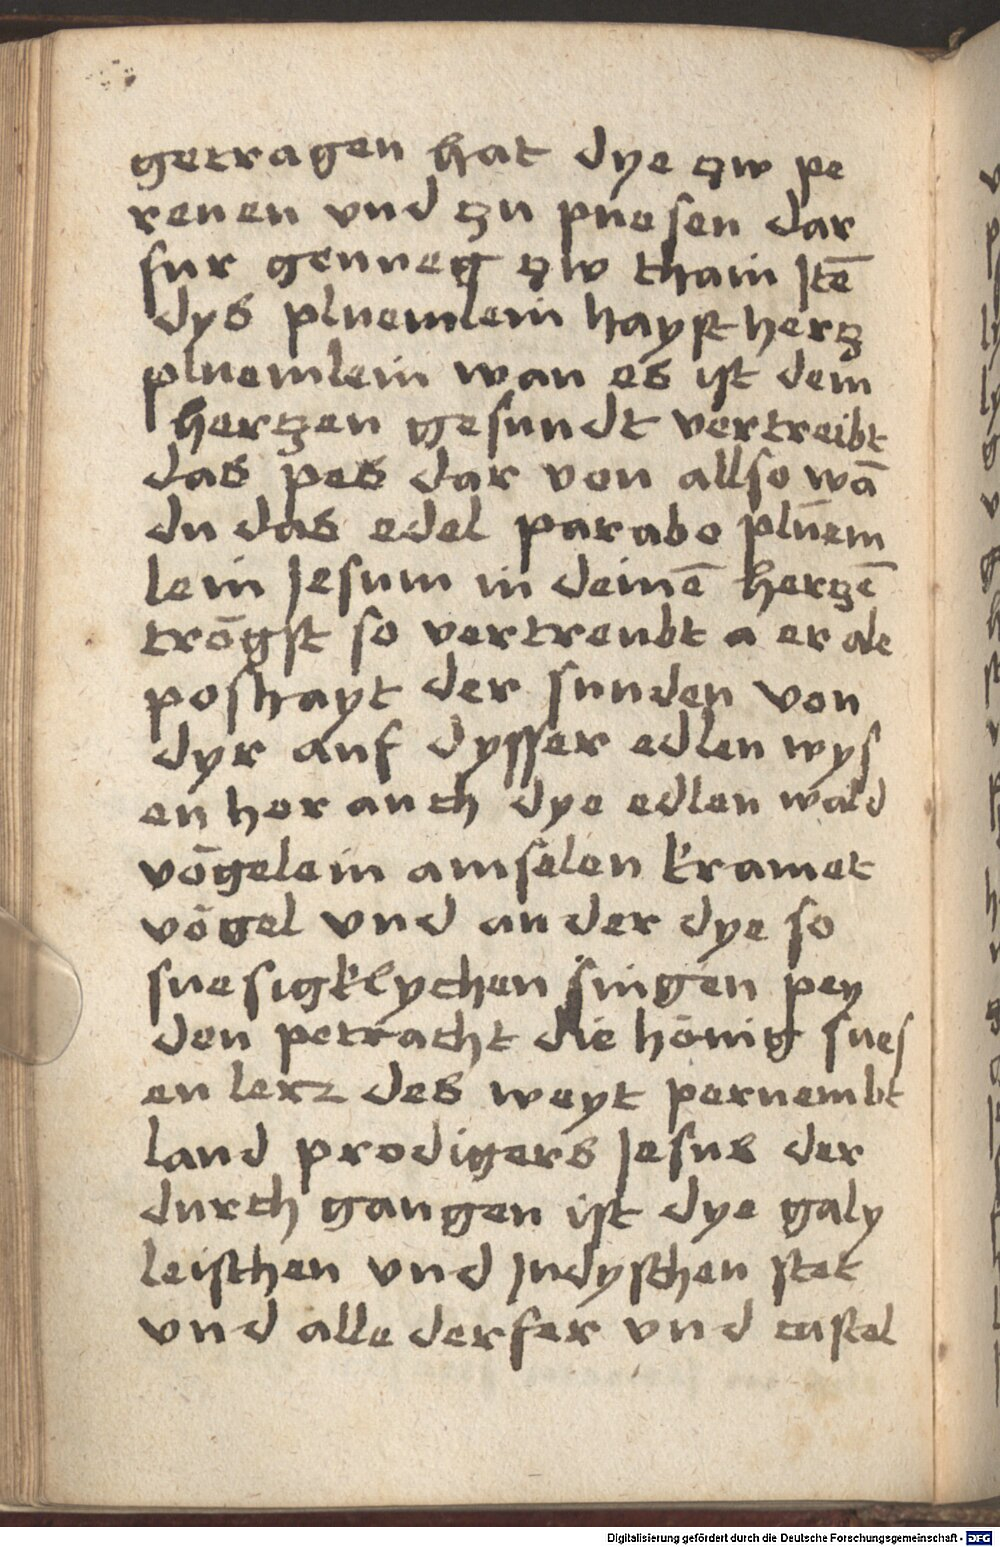 getragen hat dye zw pe
renen vnd zu puesen dar
fur genueg zw thain Jtē
dys pluemlein hayst hertz
pluemlein wan es ist dem
hertzen gesundt vertreibt
das pes dar von allso wā
du das edel parabo plūem
lein Jesum in deinē hertzē
trōgst so vertreubt a er die
poshayt der sunden von
dyr auf dysser edlen wys
en hor auch dye edlen wald
vōgelein amselen kramet
vögel vnd ander dye so
suesigklychen singen pey
den petracht die hōnig sues
en lerz des weyt pernembt
land prodigers Jesus der
durch gangen ist dye galy
leisthen vnd Judysthen stet
vnd alle derfer vnd castel
Digitalisierung gefördert durch die Deutsche Forschungsgemeinschaft - DFG